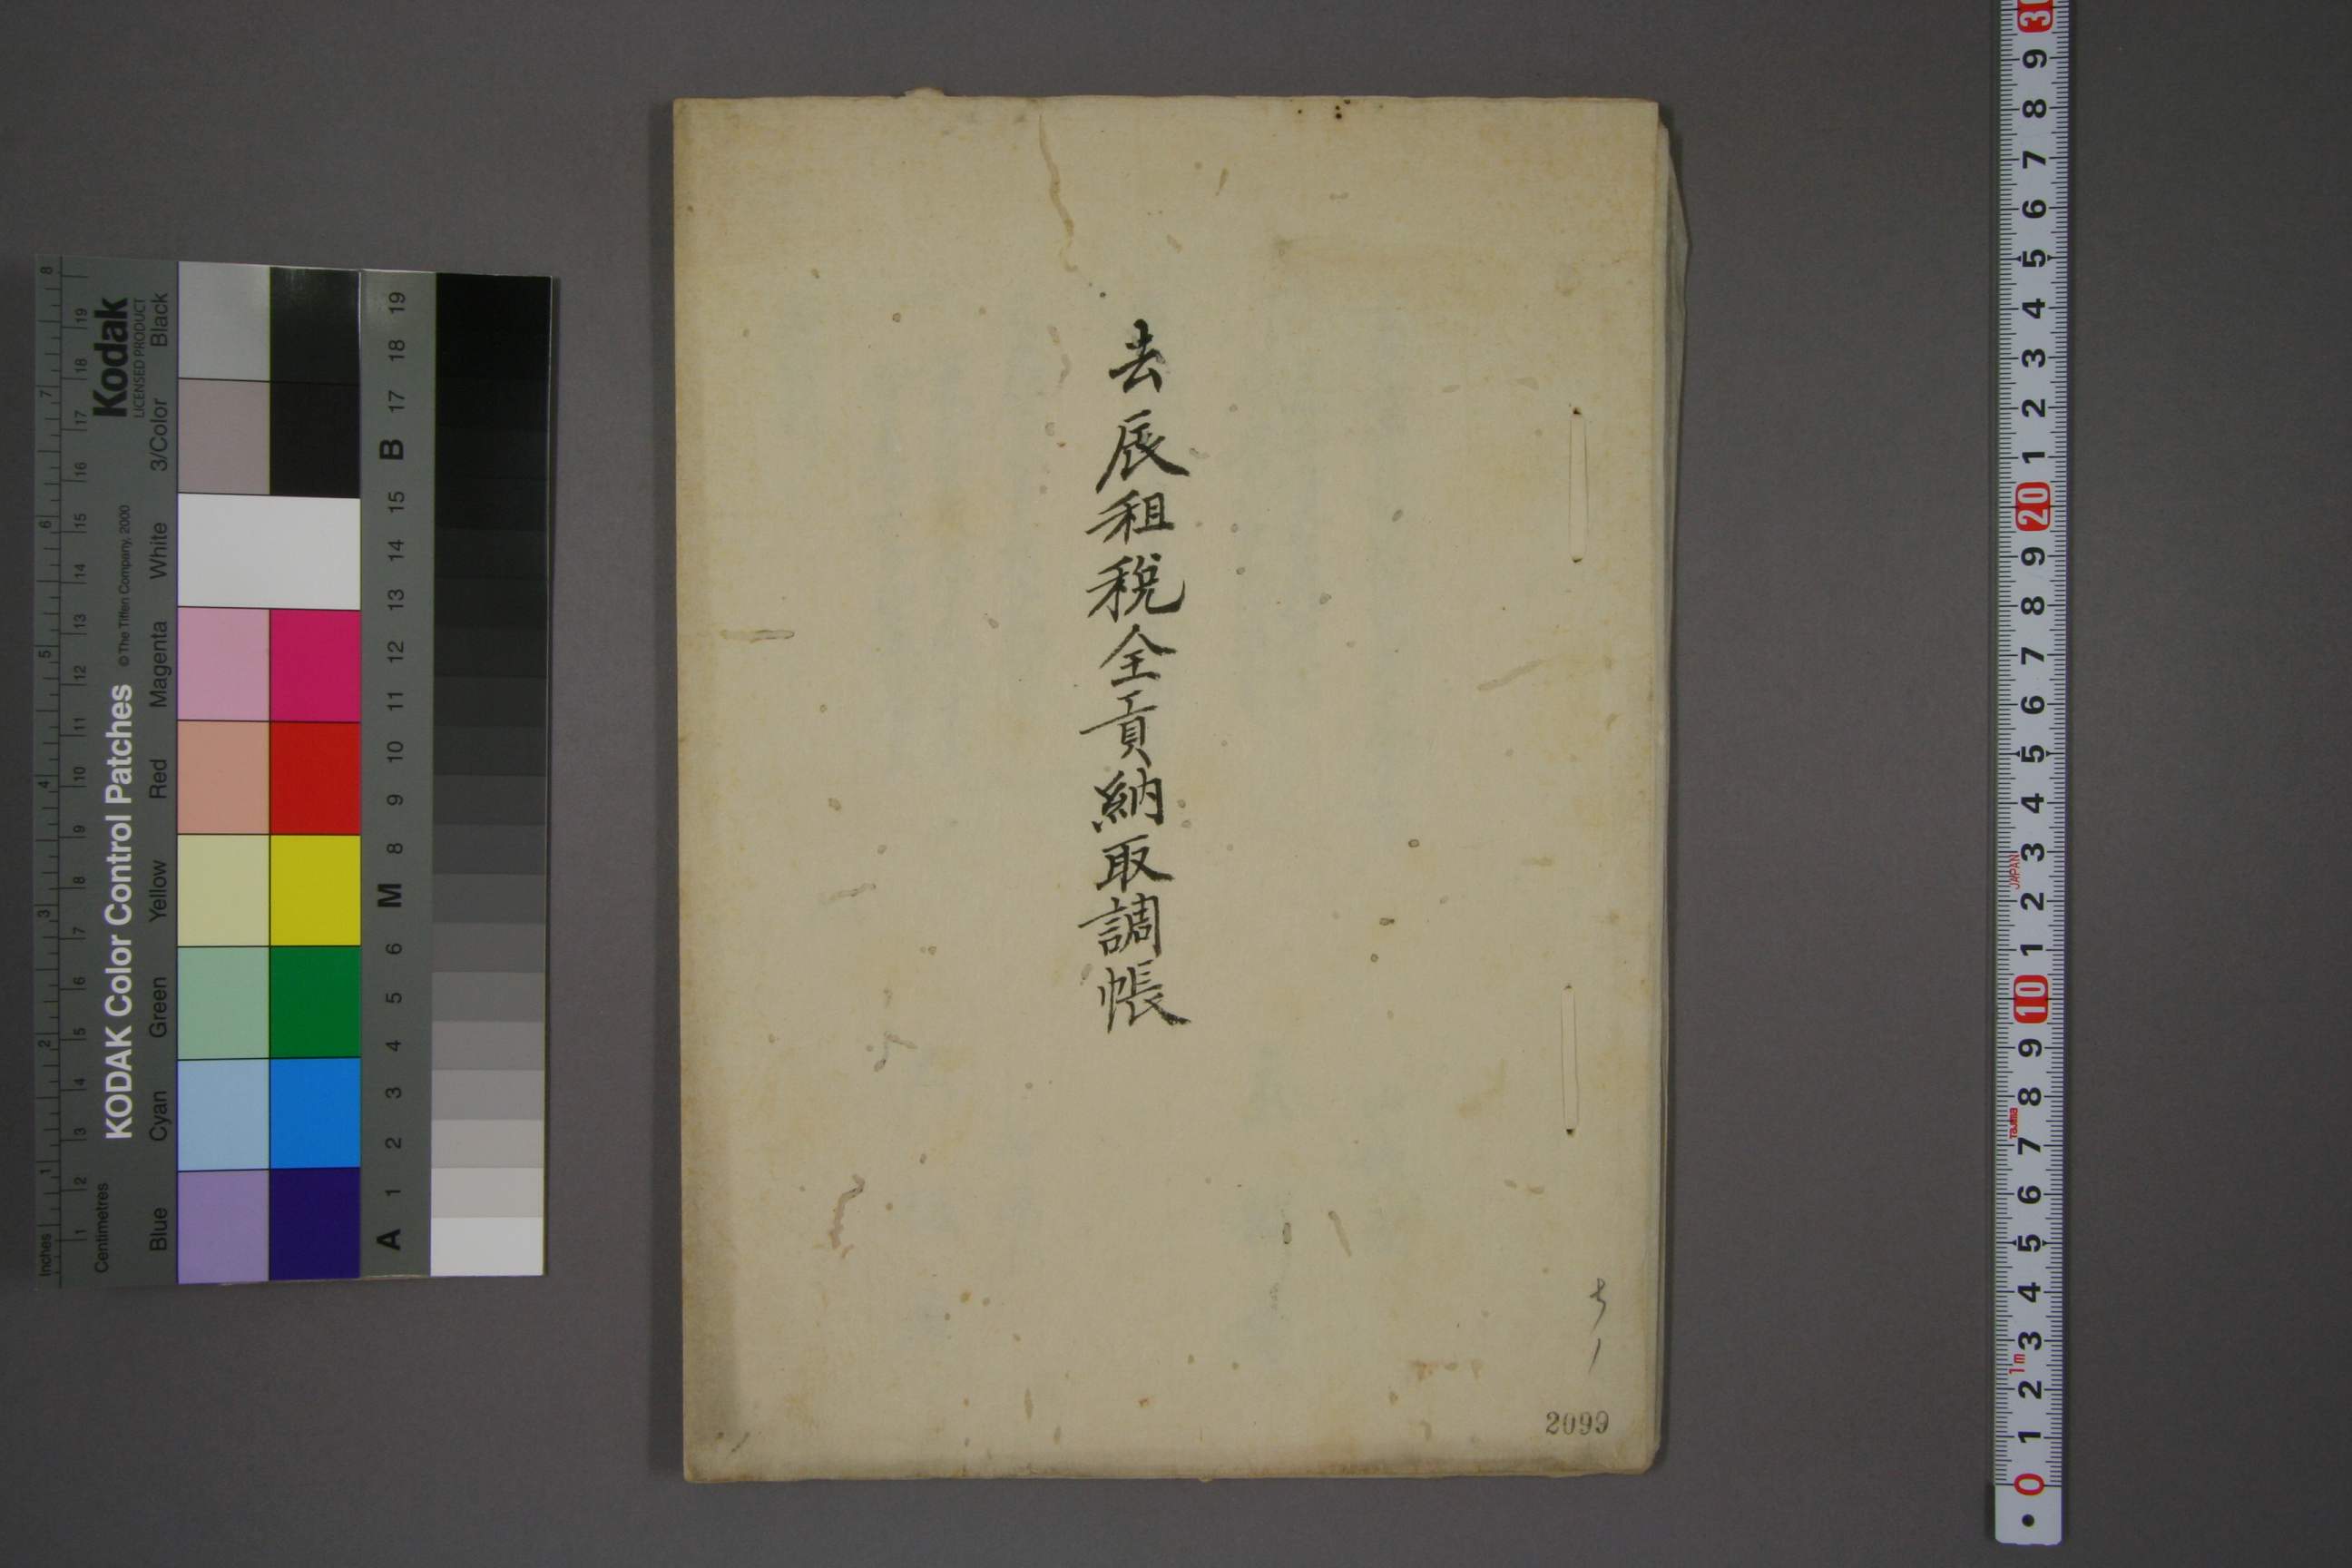 去辰租税全貢納取調帳
ち
1
2099
KODAK Color Control Patches
© The Tiffen Company, 2000
Kodak
LICENSED PRODUCT
Inches 1 2 3 4 5 6 7 8
Centimetres 1 2 3 4 5 6 7 8 9 10 11 12 13 14 15 16 17 18 19
Blue Cyan Green Yellow Red Magenta White 3/Color Black
A 1 2 3 4 5 6 M 8 9 10 11 12 13 14 15 B 17 18 19
0 1 2 3 4 5 6 7 8 9 10 1 2 3 4 5 6 7 8 9 20 1 2 3 4 5 6 7 8 9 30
1m
Tajima
JAPAN